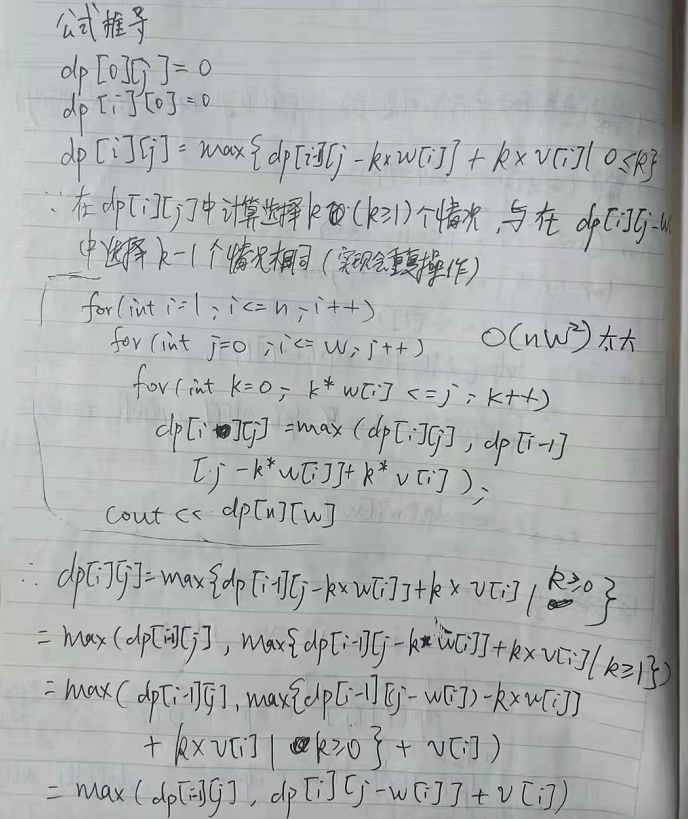 公式推导
dp[0][j]=0
dp[i][0]=0
dp[i][j]=max{dp[i-1][j-k×w[i]]+k×v[i]| 0≤k}
∵在dp[i][j]中计算选择k(k≥1)个情况,与在 dp[i][j-w
中选择k-1个情况相同(实现会重复操作)
for(int i=1;i<=n;i++)
for(int j=0;i<=W;j++) O(nW²)太大
for(int k=0; k*w[i]<=j; k++)
dp[i][j]=max(dp[i][j], dp[i-1]
[j-k*w[i]]+k*v[i]);
cout << dp[n][W]
∴ dp[i][j]=max{dp[i-1][j-k×w[i]]+k×v[i]| k≥0}
=max(dp[i-1][j], max{dp[i-1][j-k*w[i]]+k×v[i]|k≥1})
=max(dp[i-1][j], max{dp[i-1][(j-w[i])-k×w[i]]
+k×v[i]| k≥0}+v[i])
=max(dp[i-1][j], dp[i][j-w[i]]+v[i])